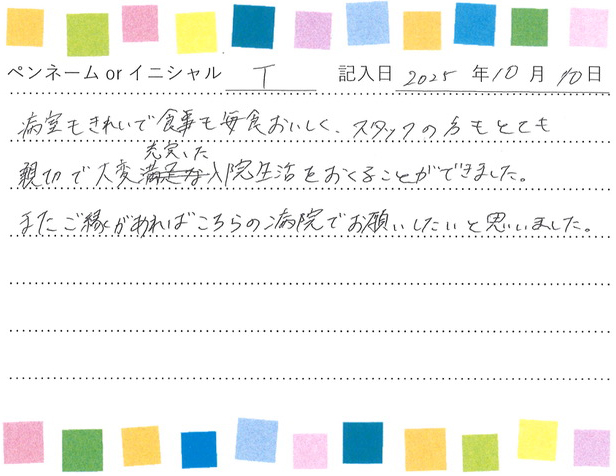 ペンネーム or イニシャル T 記入日 2025 年 10 月 10 日
病室もきれいで食事も毎食おいしく、スタッフの方もとても
充実した
親切で大変満足な入院生活をおくることができました。
またご縁があればこちらの病院でお願いしたいと思いました。